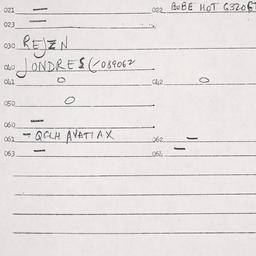 021 — 022 BOBE HOT G320
023 —
030 REJZN
040 LONDRES (/039062
041 O 042 O
050 O
060 —
061 - QCLH AVATIAX 062 —
063 — 064 —